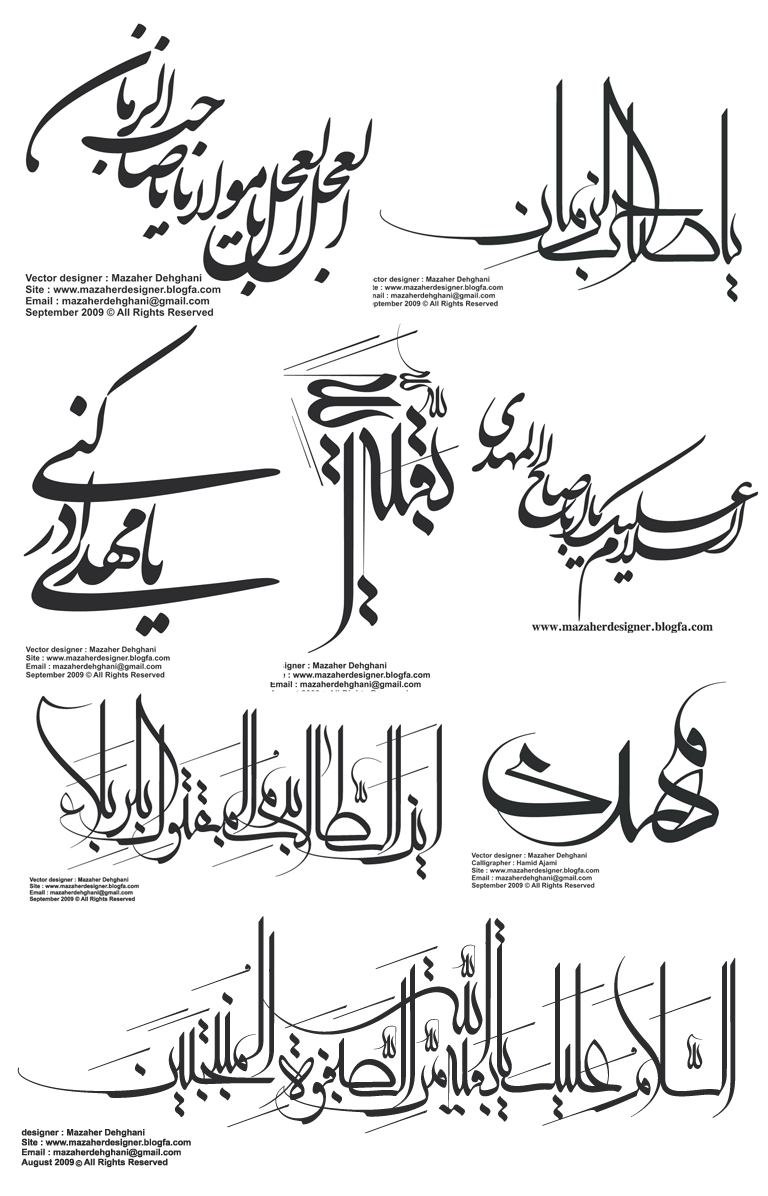 العجل العجل یا مولانا یا صاحب الزمان
Vector designer : Mazaher Dehghani
Site : www.mazaherdesigner.blogfa.com
Email : mazaherdehghani@gmail.com
September 2009 © All Rights Reserved
یا صاحب الزمان
ector designer : Mazaher Dehghani
te : www.mazaherdesigner.blogfa.com
mail : mazaherdehghani@gmail.com
eptember 2009 © All Rights Reserved
یا مهدی ادرکنی
Vector designer : Mazaher Dehghani
Site : www.mazaherdesigner.blogfa.com
Email : mazaherdehghani@gmail.com
September 2009 © All Rights Reserved
بقیة الله
igner : Mazaher Dehghani
: www.mazaherdesigner.blogfa.com
Email : mazaherdehghani@gmail.com
السلام علیک یا اباصالح المهدی
www.mazaherdesigner.blogfa.com
این الطالب بدم المقتول بکربلاء
Vector designer : Mazaher Dehghani
Site : www.mazaherdesigner.blogfa.com
Email : mazaherdehghani@gmail.com
September 2009 © All Rights Reserved
مهدی
Vector designer : Mazaher Dehghani
Calligrapher : Hamid Ajami
Site : www.mazaherdesigner.blogfa.com
Email : mazaherdehghani@gmail.com
September 2009 © All Rights Reserved
السلام علیک یا بقیة الله من الصفوة المنتجبین
designer : Mazaher Dehghani
Site : www.mazaherdesigner.blogfa.com
Email : mazaherdehghani@gmail.com
August 2009 © All Rights Reserved